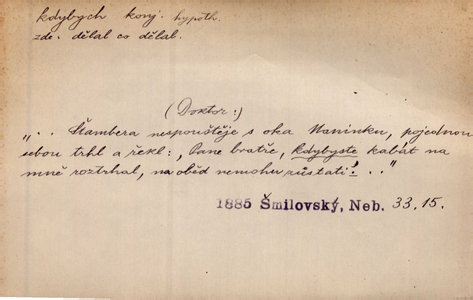 kdybych kový. hypoth.
zde. dělal co dělal.
(Doktor:)
„. . Štambera nespouštěje s oka Naninku, pojednou
sebou trhl a řekl: ‚Pane bratře, kdybyste kabát na
mně roztrhal, na oběd nemohu zůstati!‘ . ."
1885 Šmilovský, Neb. 33.15.